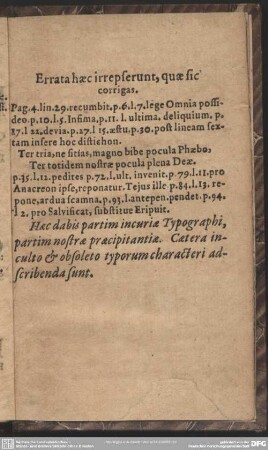 Errata hæc irrepserunt, quæ sic
corrigat.
Pag. 4. lin. 29. recumbit. p. 6. l. 7. lege Omnia possi-
deo. p. 10. l. 5. Infima, p. 11. l. ultima, deliquium, p.
17. l 22. devia. p. 27. l 15. æstu. p. 30. post lineam sex-
tam insere hoc distichon.
Ter tria, ne sitias, magno bibe pocula Phæbo,
Ter totidem nostræ pocula plena Deæ.
p. 35. l. 12. pedites p. 72. l. ult. invenit. p. 79. l. 11. pro
Anacreon ipse, reponatur. Tejus ille p. 84. l. 13. re-
pone, ardua scamna, p. 93. l. antepen. pendet. p. 94.
l 2. pro Salvificat, substitue Eripuit.
Hæc dabis partim incuriæ Typographi,
partim nostræ præcipitantiæ. Cætera in-
culto & obsoleto typorum characteri ad-
scribenda sunt.
DFG